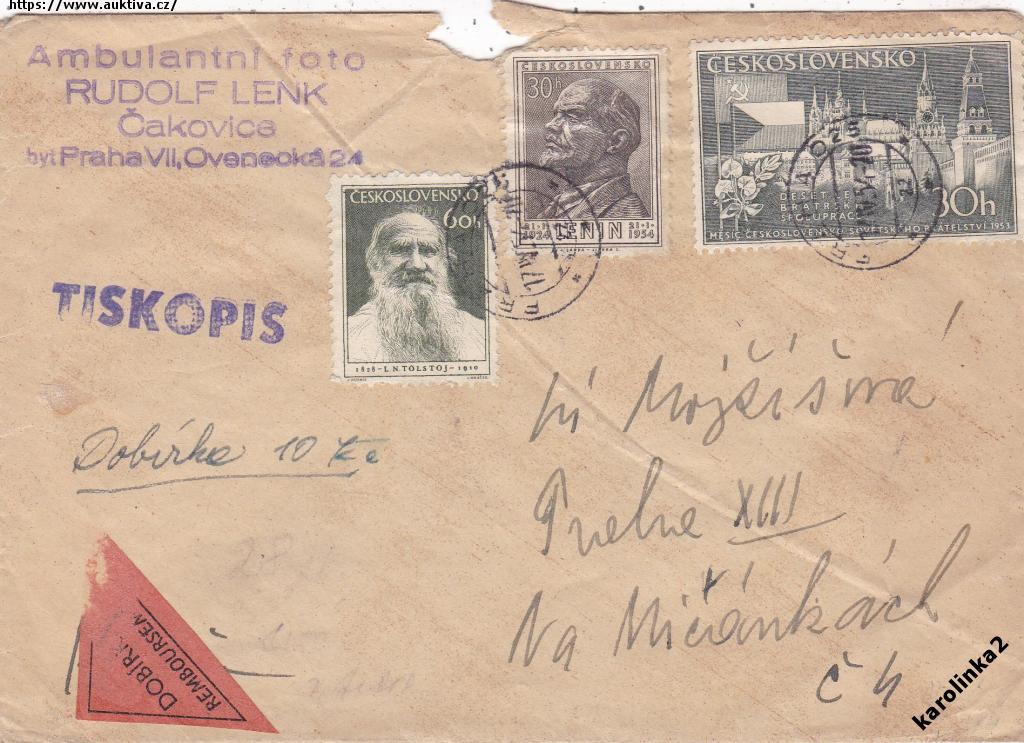 https://www.auktiva.cz/
Ambulantní foto
RUDOLF LENK
Čakovice
byt Praha VII, Ovenecká 24
ČESKOSLOVENSKO
30h
21-1-1924 LENIN 21-1-1954
ČESKOSLOVENSKO
DESET LET
BRATRSKÉ
SPOLUPRÁCE
30h
MĚSÍC ČESKOSLOVENSKO SOVĚTSKÉHO PŘÁTELSTVÍ 1953
ČESKOSLOVENSKO
60h
1828-L.N.TOLSTOJ-1910
TISKOPIS
Dobírka 10 Kč
Praha XIII
Na Mičánkách
č 4
DOBÍRK
REMBOURSEM
karolinka2